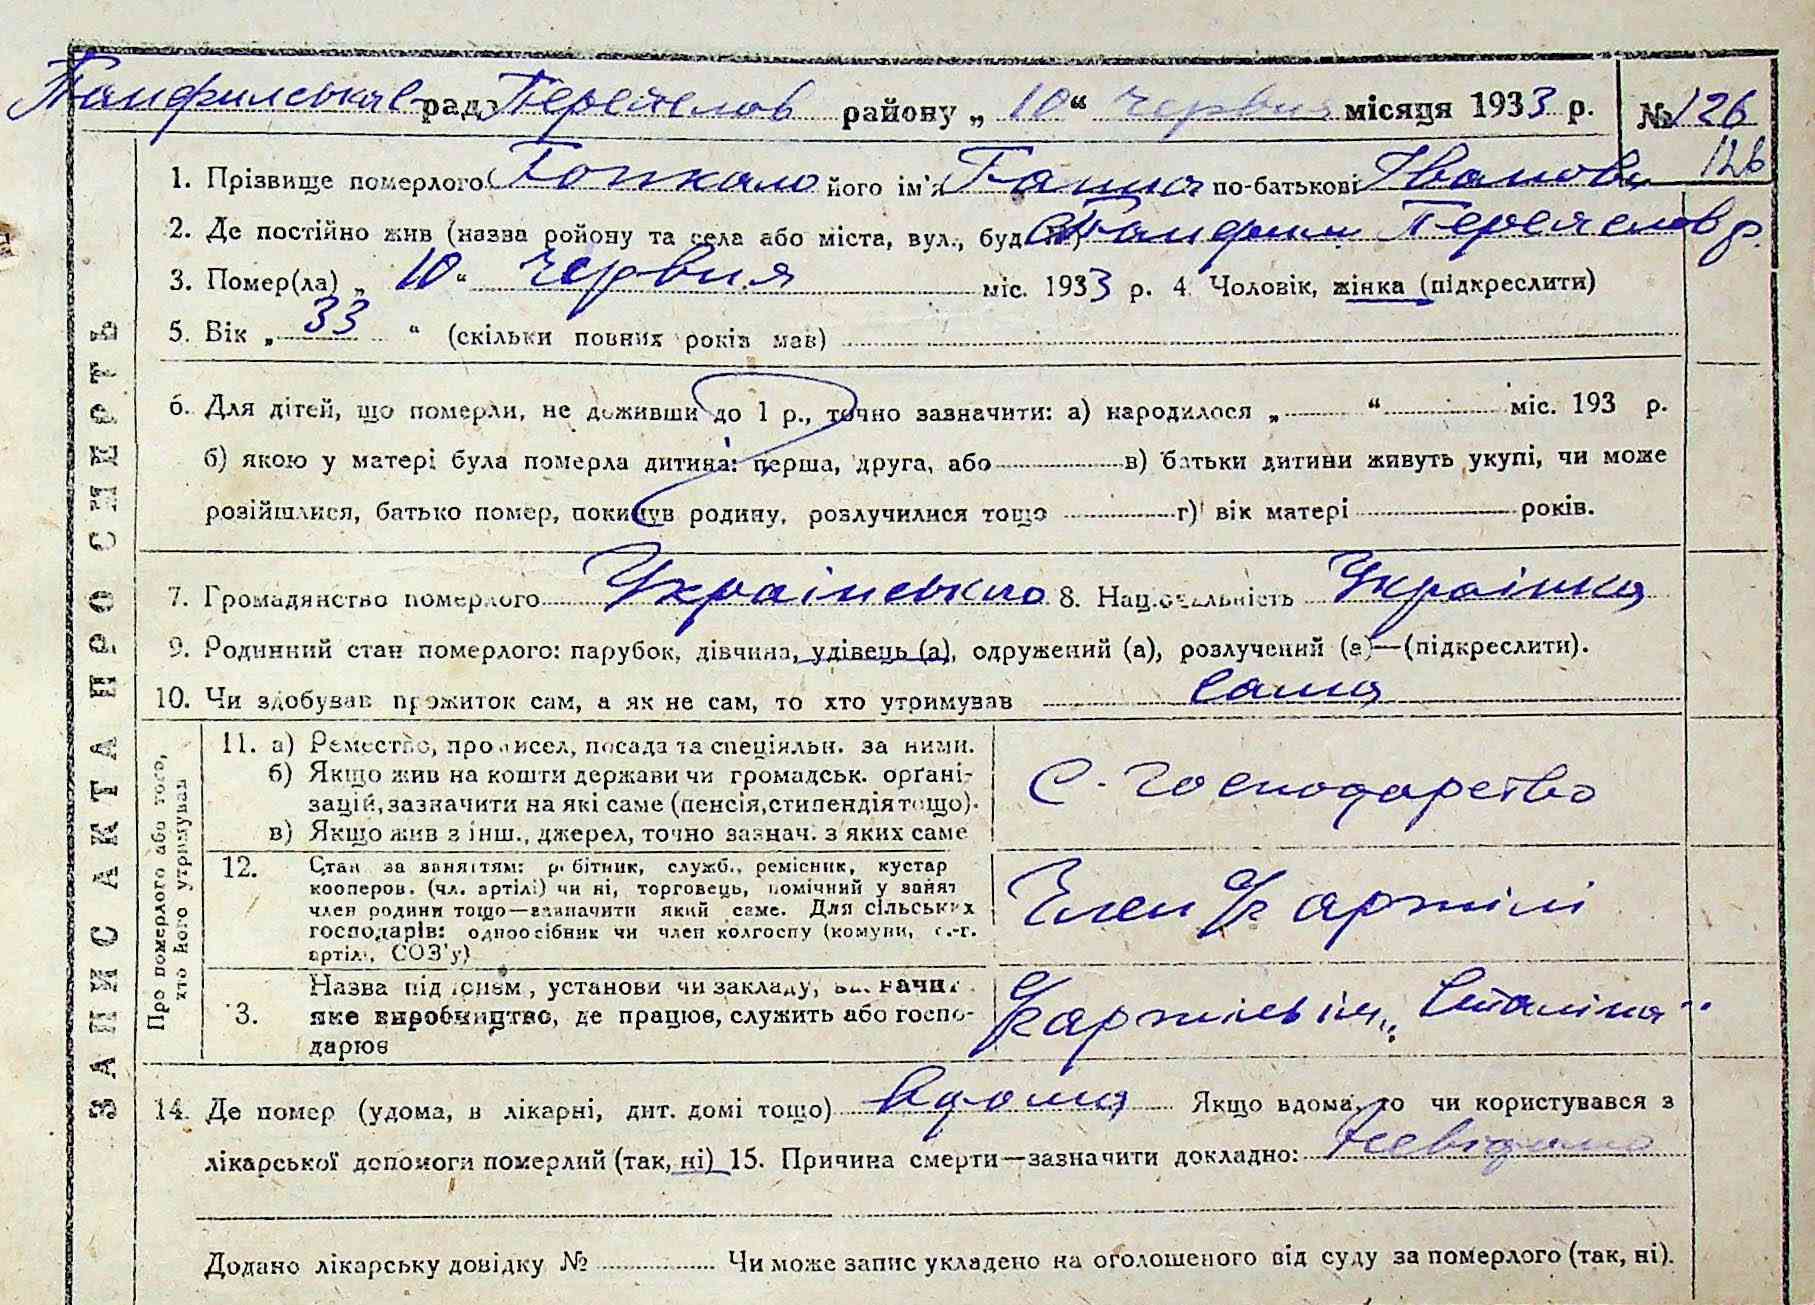 Панфильська рада Переяслов району „ 10 “ червня місяця 1933 р. № 126
126
1. Прізвище померлого Гопкало його ім'я Ганна по-батькові Іванов.
2. Де постійно жив (назва ройону та села або міста, вул., буд. №) с. Панфили Переяслов р.
3. Помер(ла) „ 10 “ червня міс. 1933 р. 4. Чоловік, жінка (підкреслити)
5. Вік „ 33 “ (скільки повних років мав)
6. Для дітей, що померли, не доживши до 1 р., точно зазначити: а) народилося „ “ міс. 193 р.
б) якою у матері була померла дитина: перша, друга, або в) батьки дитини живуть укупі, чи може
розійшлися, батько помер, покинув родину, розлучилися тощо г) вік матері років.
7. Громадянство померлого Українського 8. Національність Українка
9. Родинний стан померлого: парубок, дівчина, удівець (а), одружений (а), розлучений (а)—(підкреслити).
10. Чи здобував прожиток сам, а як не сам, то хто утримував сама
ЗАПИС АКТА ПРО СМЕРТЬ
Про померлого або того,
хто його утримував
11. а) Ремество, промисел, посада та спеціяльн. за ними.
б) Якщо жив на кошти держави чи громадськ. орґані-
зацій, зазначити на які саме (пенсія, стипендія тощо).
в) Якщо жив з інш., джерел, точно зазнач. з яких саме
С. Господарство
12. Стан за заняттям: робітник, служб., ремісник, кустар
кооперов. (чл. артілі) чи ні, торговець, помічний у занят
член родини тощо—зазначити який саме. Для сільських
господарів: одноосібник чи член колгоспу (комуни, с.-г.
артілі, СОЗ'у)
Член артілі
3. Назва підприєм., установи чи закладу, зазначит.
яке виробництво, де працює, служить або госпо-
дарює
„Сталіна“
14. Де помер (удома, в лікарні, дит. домі тощо) вдома Якщо вдома, то чи користувався з
лікарської допомоги померлий (так, ні) 15. Причина смерти—зазначити докладно: Невідомо
Додано лікарську довідку № Чи може запис укладено на оголошеного від суду за померлого (так, ні).